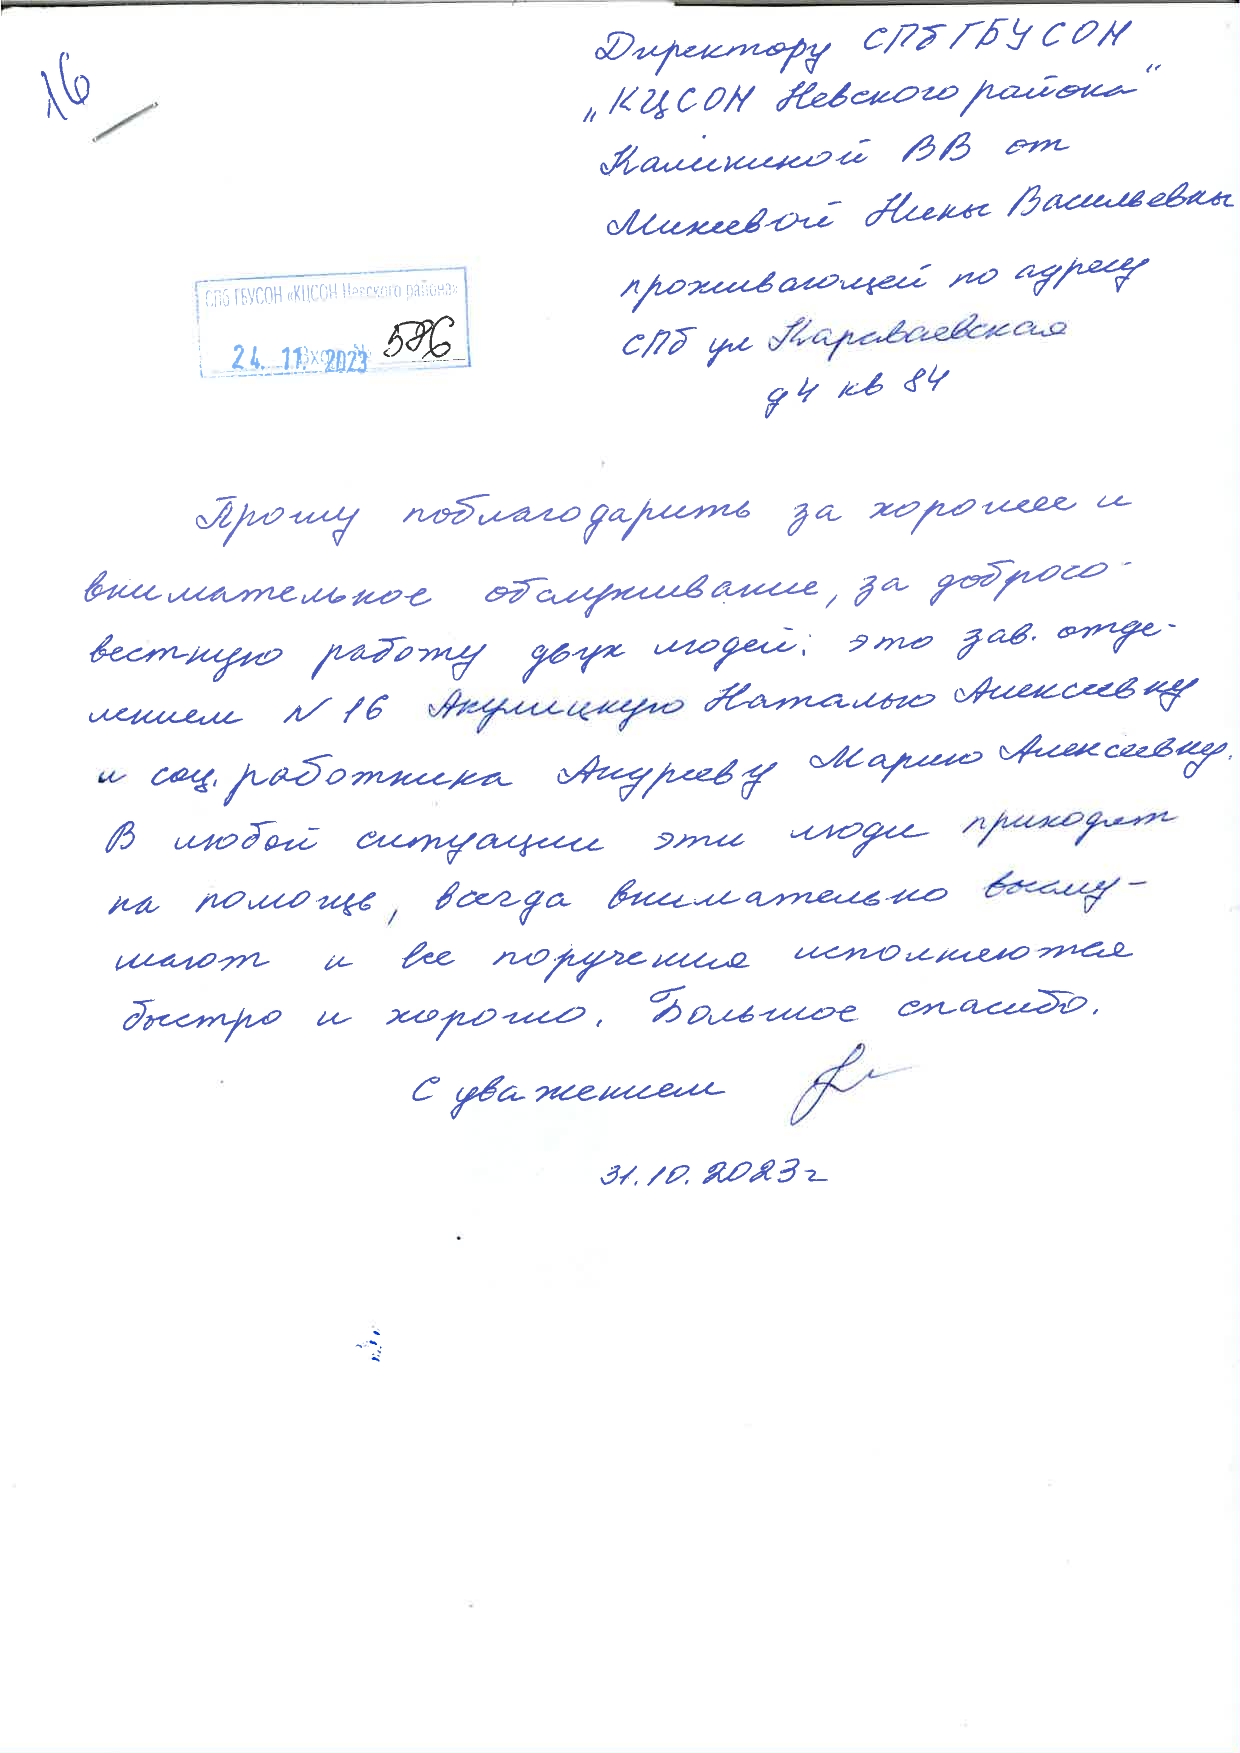 16
Директору СПб ГБУСОН
„КЦСОН Невского района“
Калининой ВВ от
Михеевой Нины Васильевны
проживающей по адресу
СПб ул Караваевская
д 4 кв 84
СПб ГБУСОН «КЦСОН Невского района»
24. 11. 2023 586
Прошу поблагодарить за хорошее и
внимательное обслуживание, за добросо-
вестную работу двух людей: это зав. отде-
лением N 16 Акулицкую Наталью Алексеевну
и соц. работника Андрееву Марию Алексеевну.
В любой ситуации эти люди приходят
на помощь, всегда внимательно выслу-
шают и все поручения исполняются
быстро и хорошо. Большое спасибо.
С уважением
31.10.2023 г